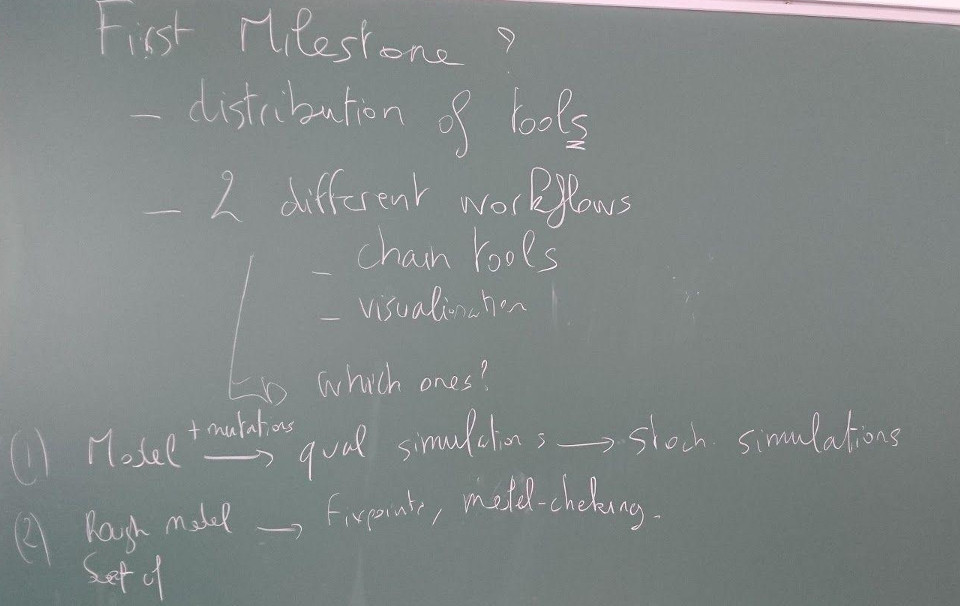 First Milestone ?
- distribution of tools
- 2 different workflows
- chain tools
- visualisation
which ones?
(1) Model + mutations → qual simulations → stoch. simulations
(2) Rough model → Fixpoints, model-cheking.
Set of